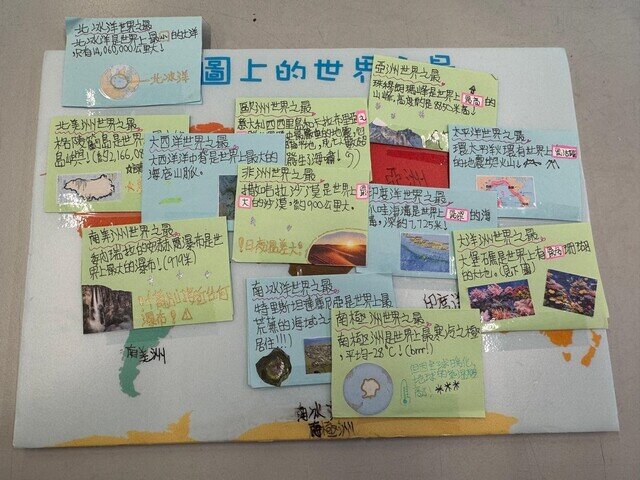 圖上的世界之最
北冰洋世界之最
北冰洋是世界上最小的大洋
只有14,060,000公里大!
北冰洋
北美洲世界之最
格陵蘭島是世界
島嶼!(約2,166,08
大西洋世界之最
大西洋洋中脊是世界上最大的
海底山脈。
歐洲世界之最
意大利西西里島
非洲世界之最
撒哈拉沙漠是世界上最
大的沙漠,約900公里大。
日夜溫差大!
亞洲世界之最
珠穆朗瑪峰是世界上最高的
山峰,高度約是8850米高!
太平洋世界之最
環太平洋火環有世界上
的地震與火山!
印度洋世界之最
爪哇海溝是世界上最深的海
溝,深約7,725米!
大洋洲世界之最
大堡礁是世界上有最多珊瑚
的地區。(見下圖)
南美洲世界之最
委內瑞拉的安赫爾瀑布是世
界上最大的瀑布!(979米)
南冰洋世界之最
特里斯坦
荒蕪的海域之
居住!!!)
南極洲世界之最
南極洲是世界上最寒冷之極
,平均-28℃!(brrr!)
印度洋
南美洲
南冰洋
南極洲